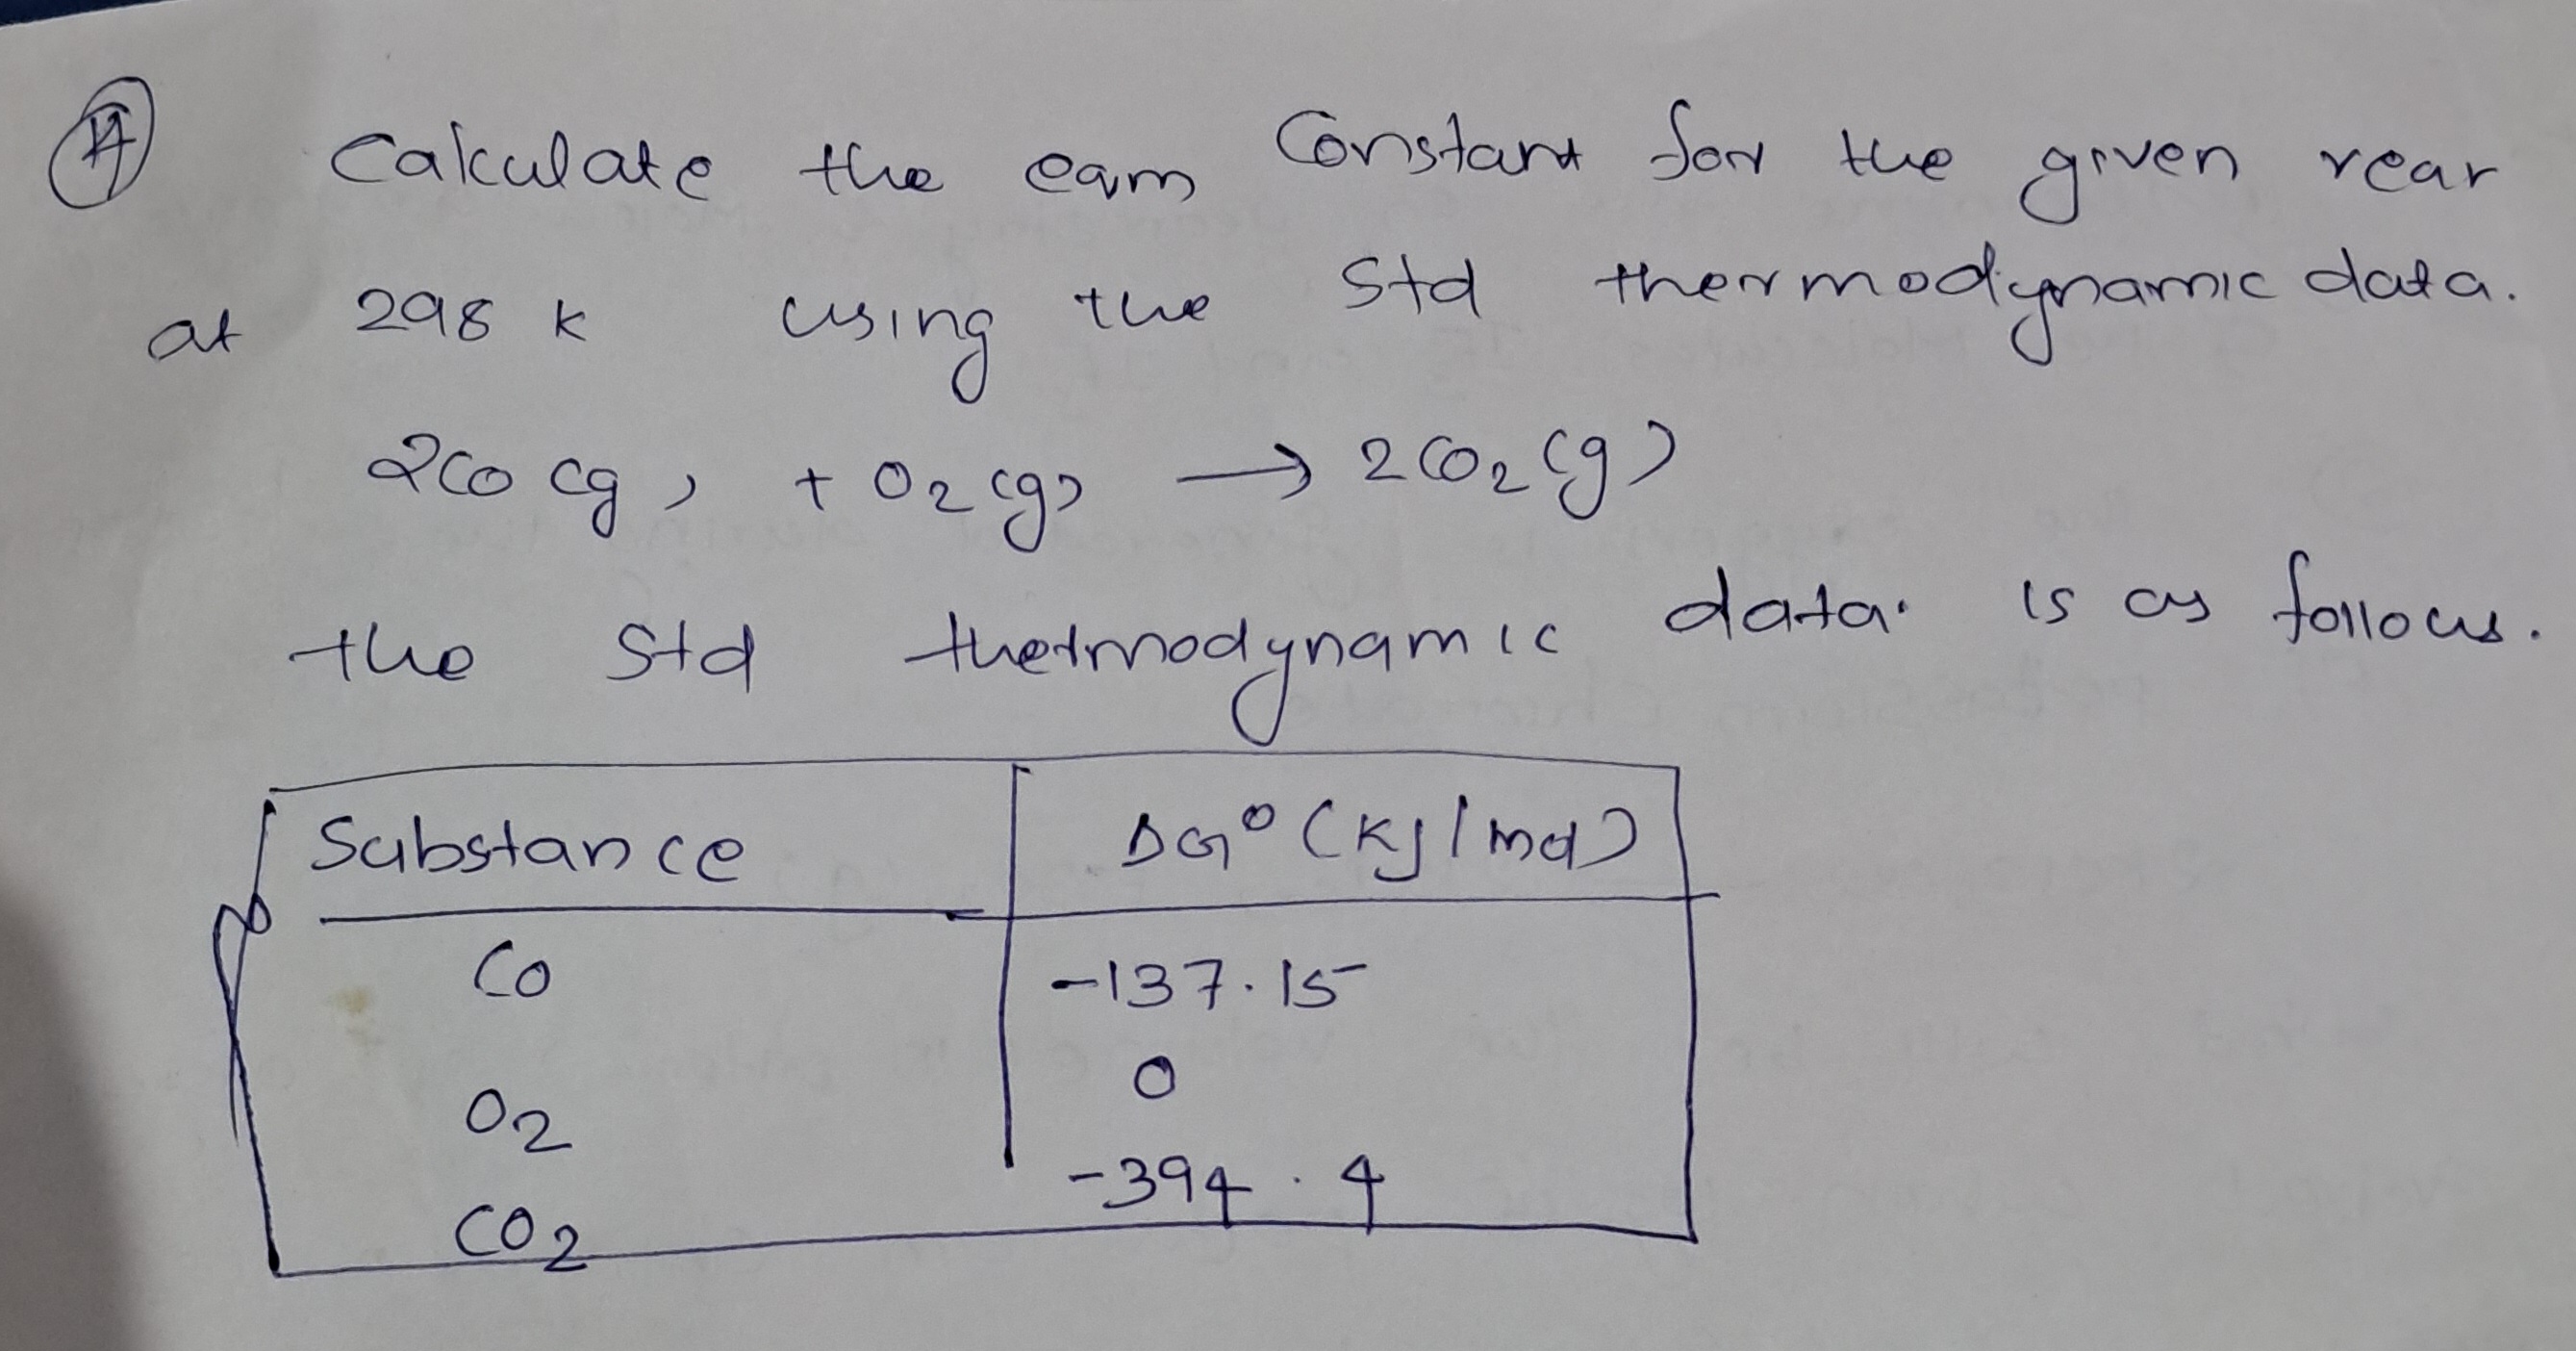 Calculate the eqm Constant for the given rear
at 298 k using the std thermodynamic data.
2CO (g) + O2 (g) → 2CO2 (g)
the std thermodynamic data. is as follows.
Substance ΔG° (KJ/mol)
CO -137.15
O2 0
CO2 -394.4